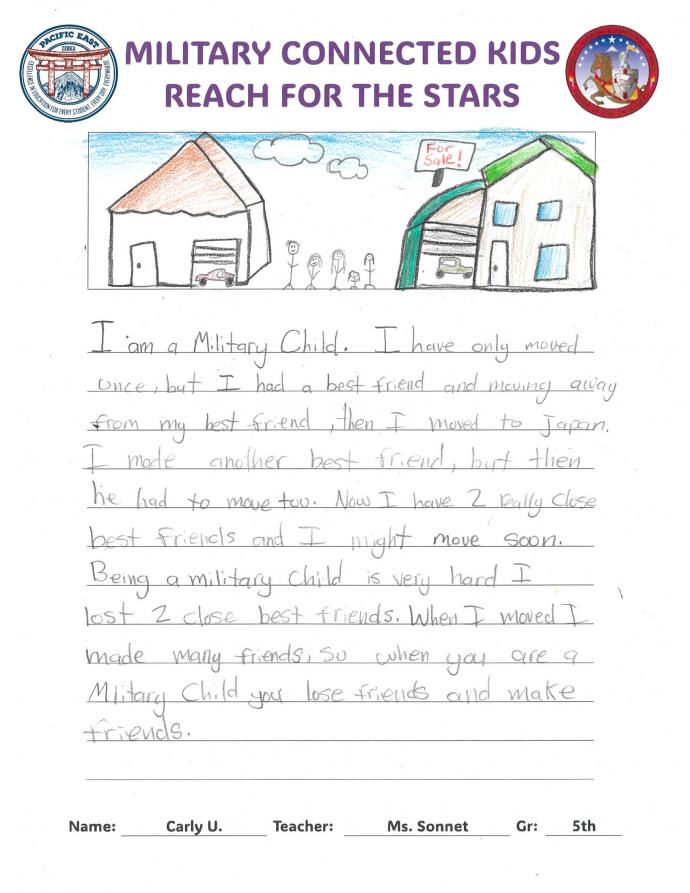 PACIFIC EAST
DODEA
EXCELLENCE IN EDUCATION FOR EVERY STUDENT, EVERY DAY, EVERYWHERE
MILITARY CONNECTED KIDS
REACH FOR THE STARS
For
Sale!
I am a Military Child. I have only moved
once, but I had a best friend and moving away
from my best friend, then I moved to Japan.
I made another best friend, but then
he had to move too. Now I have 2 really close
best friends and I might move soon.
Being a military Child is very hard I
lost 2 close best friends. When I moved I
made many friends, so when you are a
Military Child you lose friends and make
friends.
Name: Carly U. Teacher: Ms. Sonnet Gr: 5th